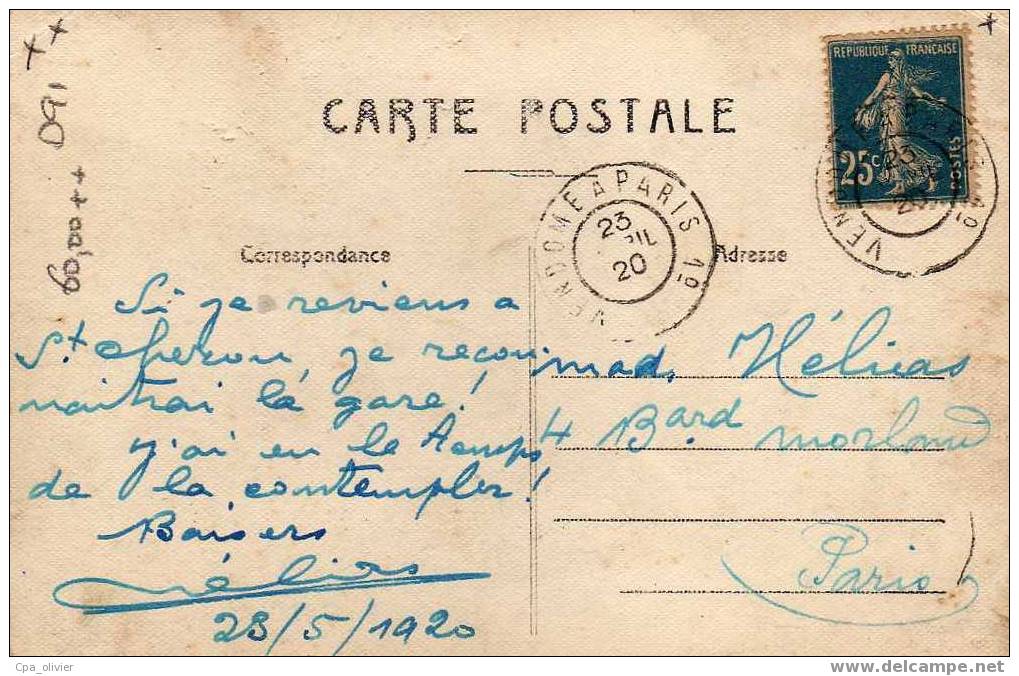 ++
D91
60,00++
+
REPUBLIQUE FRANCAISE
25c
POSTES
CARTE POSTALE
VENDOME A PARIS 1º
23
20
VENDOME A PARIS 1º
23
20
Correspondance
Adresse
Si je reviens a
St. cheron, je recon
naitrai la gare!
J'ai eu le temps
de la contempler!
Baisers
Hélias
28/5/1920
Mad. Hélias
4 Bard Morland
Paris
Cpa_olivier
www.delcampe.net